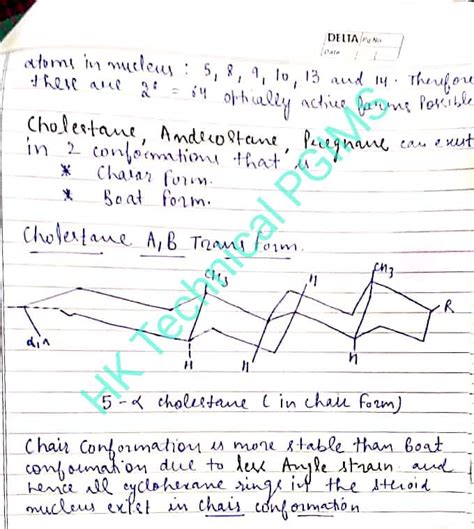 DELTA Pg No.
Date
atoms in nucleus : 5, 8, 9, 10, 13 and 14. Therefore
there are 2⁶ = 64 optically active forms Possible
Cholestane, Androstane, Pregnane can exist
in 2 conformations that is
* Chair form.
* Boat form.
Cholestane A,B Trans form.
CH3 H CH3
R
H H H
5-α cholestane (in chair form)
Chair Conformation is more stable than Boat
conformation due to less Angle strain and
hence all cyclohexane rings in the steroid
nucleus exist in chair conformation
HK Technical PGIMS